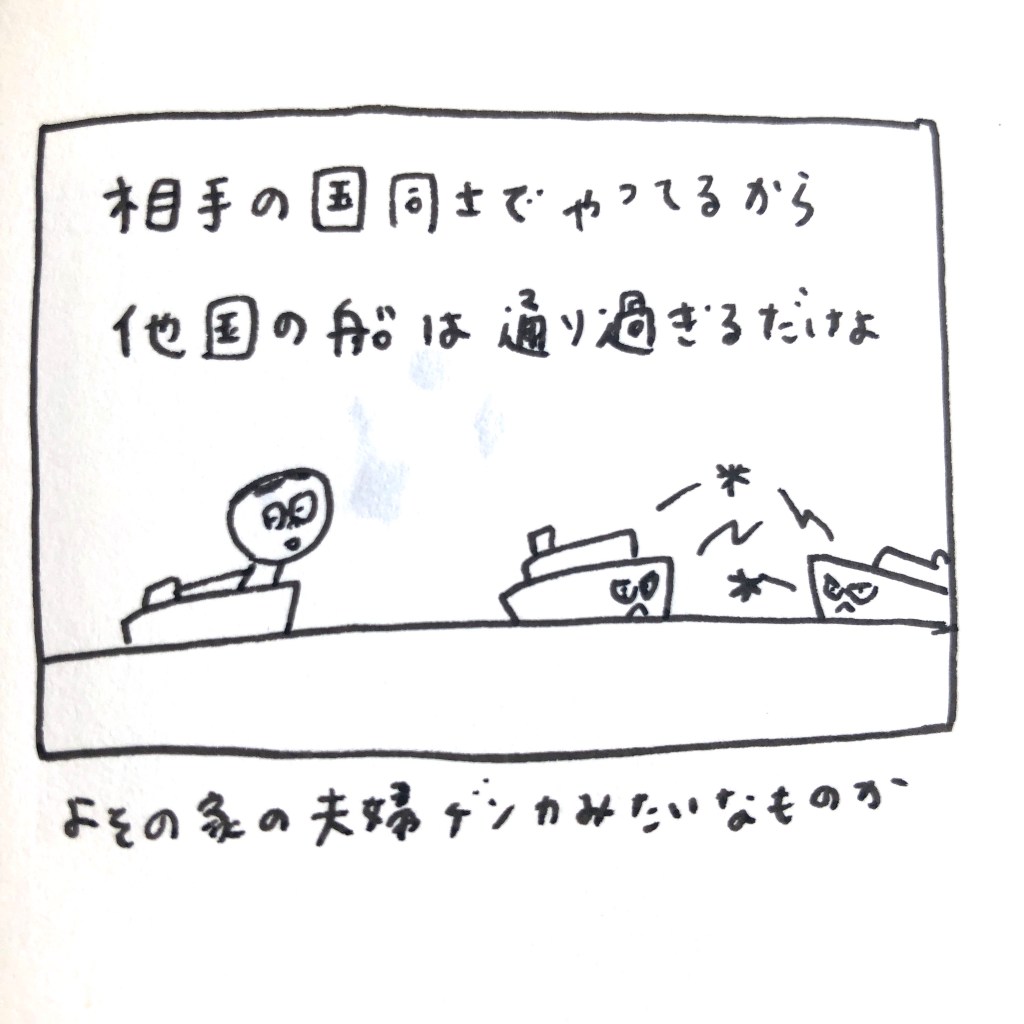 相手の国同士でやってるから
他国の船は通り過ぎるだけよ
よその家の夫婦ゲンカみたいなものか